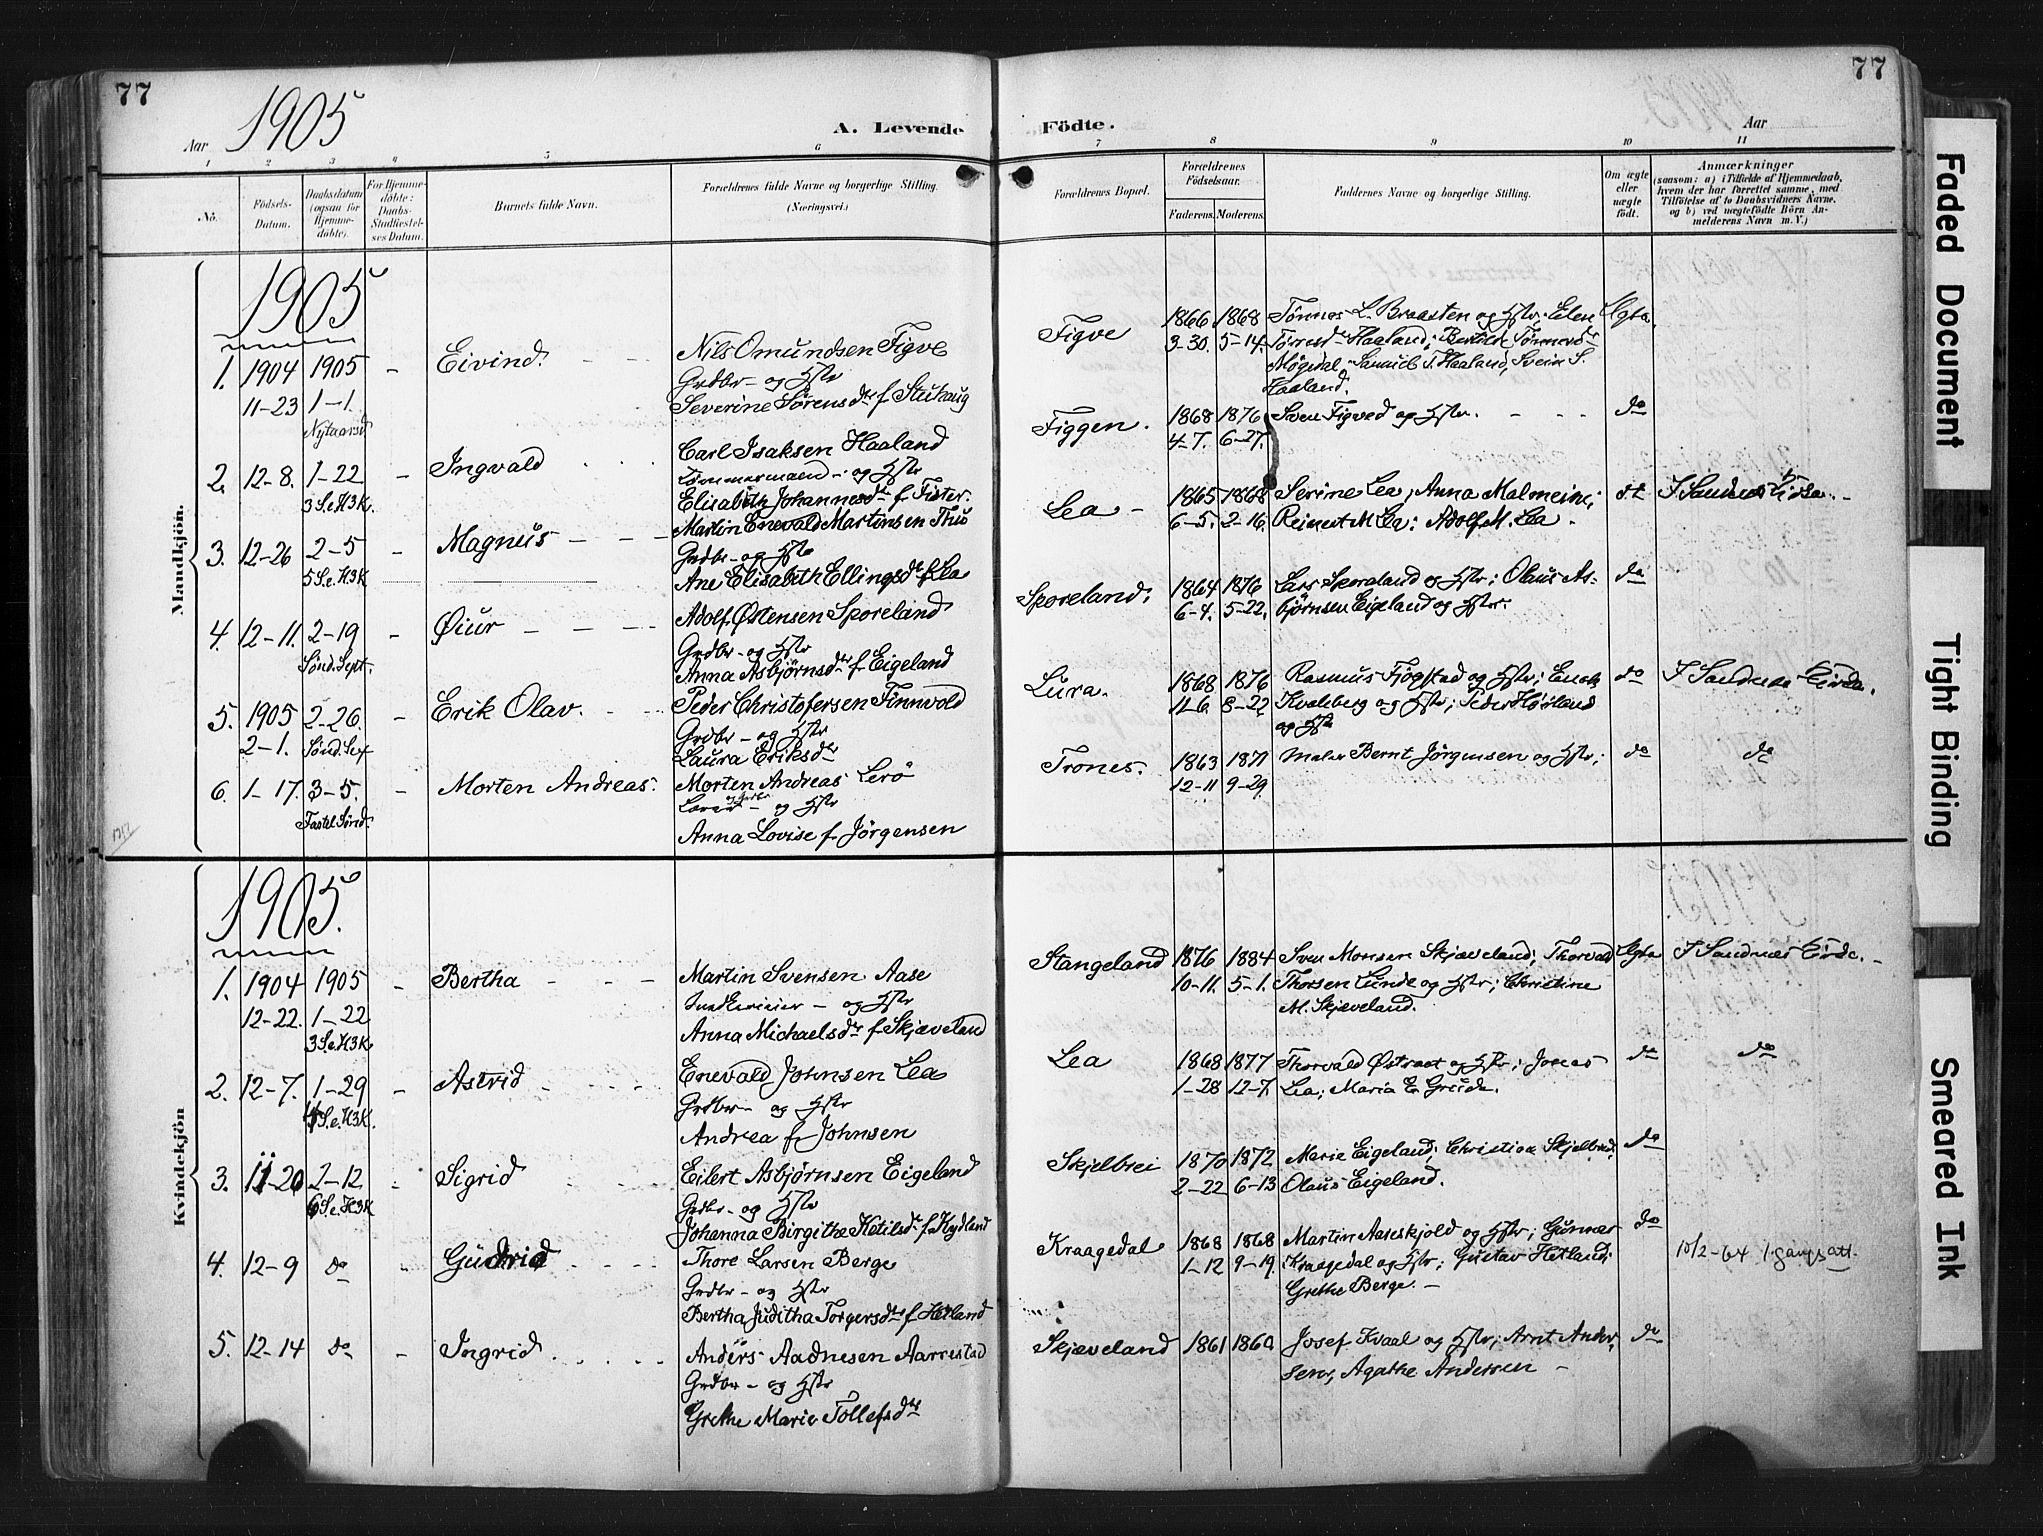 77
Aar 1905
A. Levende
1 2 3 4 5 6
Nö.
Födsels-
Datum.
Daabsdatum
(ogsaa for
Hjemme-
döbte).
For Hjemme-
döbte:
Daabs-
Stadfæstel-
ses Datum.
Barnets fulde Navn.
Forældrenes fulde Navne og borgerlige Stilling.
(Næringsvei.)
Mandkjön.
1905
1. 1904 1905 - Eivind. Nils Omundsen Figve
11-23 1-1. Grdbr - og Hstr
Nytaarsd Severine Sørensdtr f Stuhaug
2. 12-8. 1-22 - Ingvald Carl Isaksen Haaland
3 S.e.H3K. Tømmermand - og Hstr
Elisabeth Johannesdtr f Fister.
3. 12-26 2-5 - Magnus Martin Enevald Martinsen Thu
5 S.e.H3K Grdbr - og Hstr
Ane Elisabeth Ellingsdtr f Lea
4. 12-11. 2-19 - Øiur Adolf Østensen Sporeland
Sønd. Sept. Grdbr - og Hstr
Anna Asbjørnsdtr f Eigeland
5. 1905 2-26. - Erik Olav. Peder Christofersen Finnvold
2-1. Sønd. Sex Grdbr - og Hstr
Laura Eriksdtr
6. 1-17. 3-5. - Morten Andreas. Morten Andreas Lerø
Fastel Sønd. Lærer og Grdbr - og Hstr
Anna Lovise f Jørgensen
Kvindekjön
1905.
1. 1904 1905 - Bertha Martin Svensen Aase
12-22. 1-22 - og Hstr
3 S.e.H3K Anna Michaelsdtr f Skjæveland
2. 12-7. 1-29 - Astrid Enevald Johnsen Lea
4 S.e.H3K. Grdbr - og Hstr
Andrea f Johnsen
3. 11-20 2-12 - Sigrid Eilert Asbjørnsen Eigeland
6 S.e.H3K Grdbr - og Hstr
Johanna Birgithe Ketilsdtr f Kydland
4. 12-9 do - Gudrid Thore Larsen Berge
Grdbr - og Hstr
Bertha Juditha Torgersdtr f Hetland
5. 12-14 do - Ingrid. Anders Aadnesen Aarrestad
Grdbr - og Hstr
Grethe Marie Tollefsdtr
77
Födte.
Aar
7 8 9 10 11
Forældrenes Bopæl.
Forældrenes
Födselsaar.
Faderens. Moderens.
Faddernes Navne og borgerlige Stilling.
Om ægte
eller
uægte
födt.
Anmærkninger
(saasom: a) i Tilfælde af Hjemmedaab,
hvem der har forrettet samme, med
Tilföielse af to Daabsvidners Navne.
og b) ved uægtefödte Börn An-
melderens Navn m. V.)
Figve 1866 1868 Tønnes L. Braasten og Hstr. Elen Ægte.
3-30. 5-14. Tørresdtr Haaland; Berthe Tønnesdtr
Møgedal, Samuel T. Haaland, Svein S.
Haaland.
Figgen. 1868 1876 Sven Figved og Hstr. do
4-7. 6-27.
Lea - 1865 1868 Serine Lea; Anna Malmeim; do I Sandnes Kirke. -
6-5. 2-16. Reinert M. Lea; Adolf M. Lea.
Sporeland. 1864 1876 Lars Sporaland og Hstr; Olaus As- do
6-4. 5-22. bjørnsen Eigeland og Hstr.
Lura. 1868 1876 Rasmus Fjøgstad og Hstr; Enok do I Sandnes Kirke.
11-6. 8-22 Kvaleberg og Hstr; Peder Høiland
og Hstr
Trones. 1863 1871 Maler Bernt Jørgensen og Hstr; do do
12-11 9-29
Stangeland 1876 1884 Sven Monsen Skjæveland; Thorvald Ægte I Sandnes Kirke. -
10-11. 5-1. Thorsen Lunde og Hstr; Christine
M. Skjæveland.
Lea 1868 1877 Thorvald Østraat og Hstr; Jonas do do
1-28 12-7. Lea; Maria E. Grude.
Skjelbrei 1870 1872 Marie Eigeland; Christian Skjelbrei; do
2-22 6-13 Olaus Eigeland.
Kraagedal 1868 1868 Martin Aareskjold og Hstr; Gunnar do
1-12 9-19. Kraagedal og Hstr; Gustav Hetland; 10/2-64 1 gangs att.
Grethe Berge. -
Skjæveland 1861 1860 Josef Kvaal og Hstr; Arnt Ander- do
sen, Agathe Andersen -
Faded Document
Tight Binding
Smeared Ink